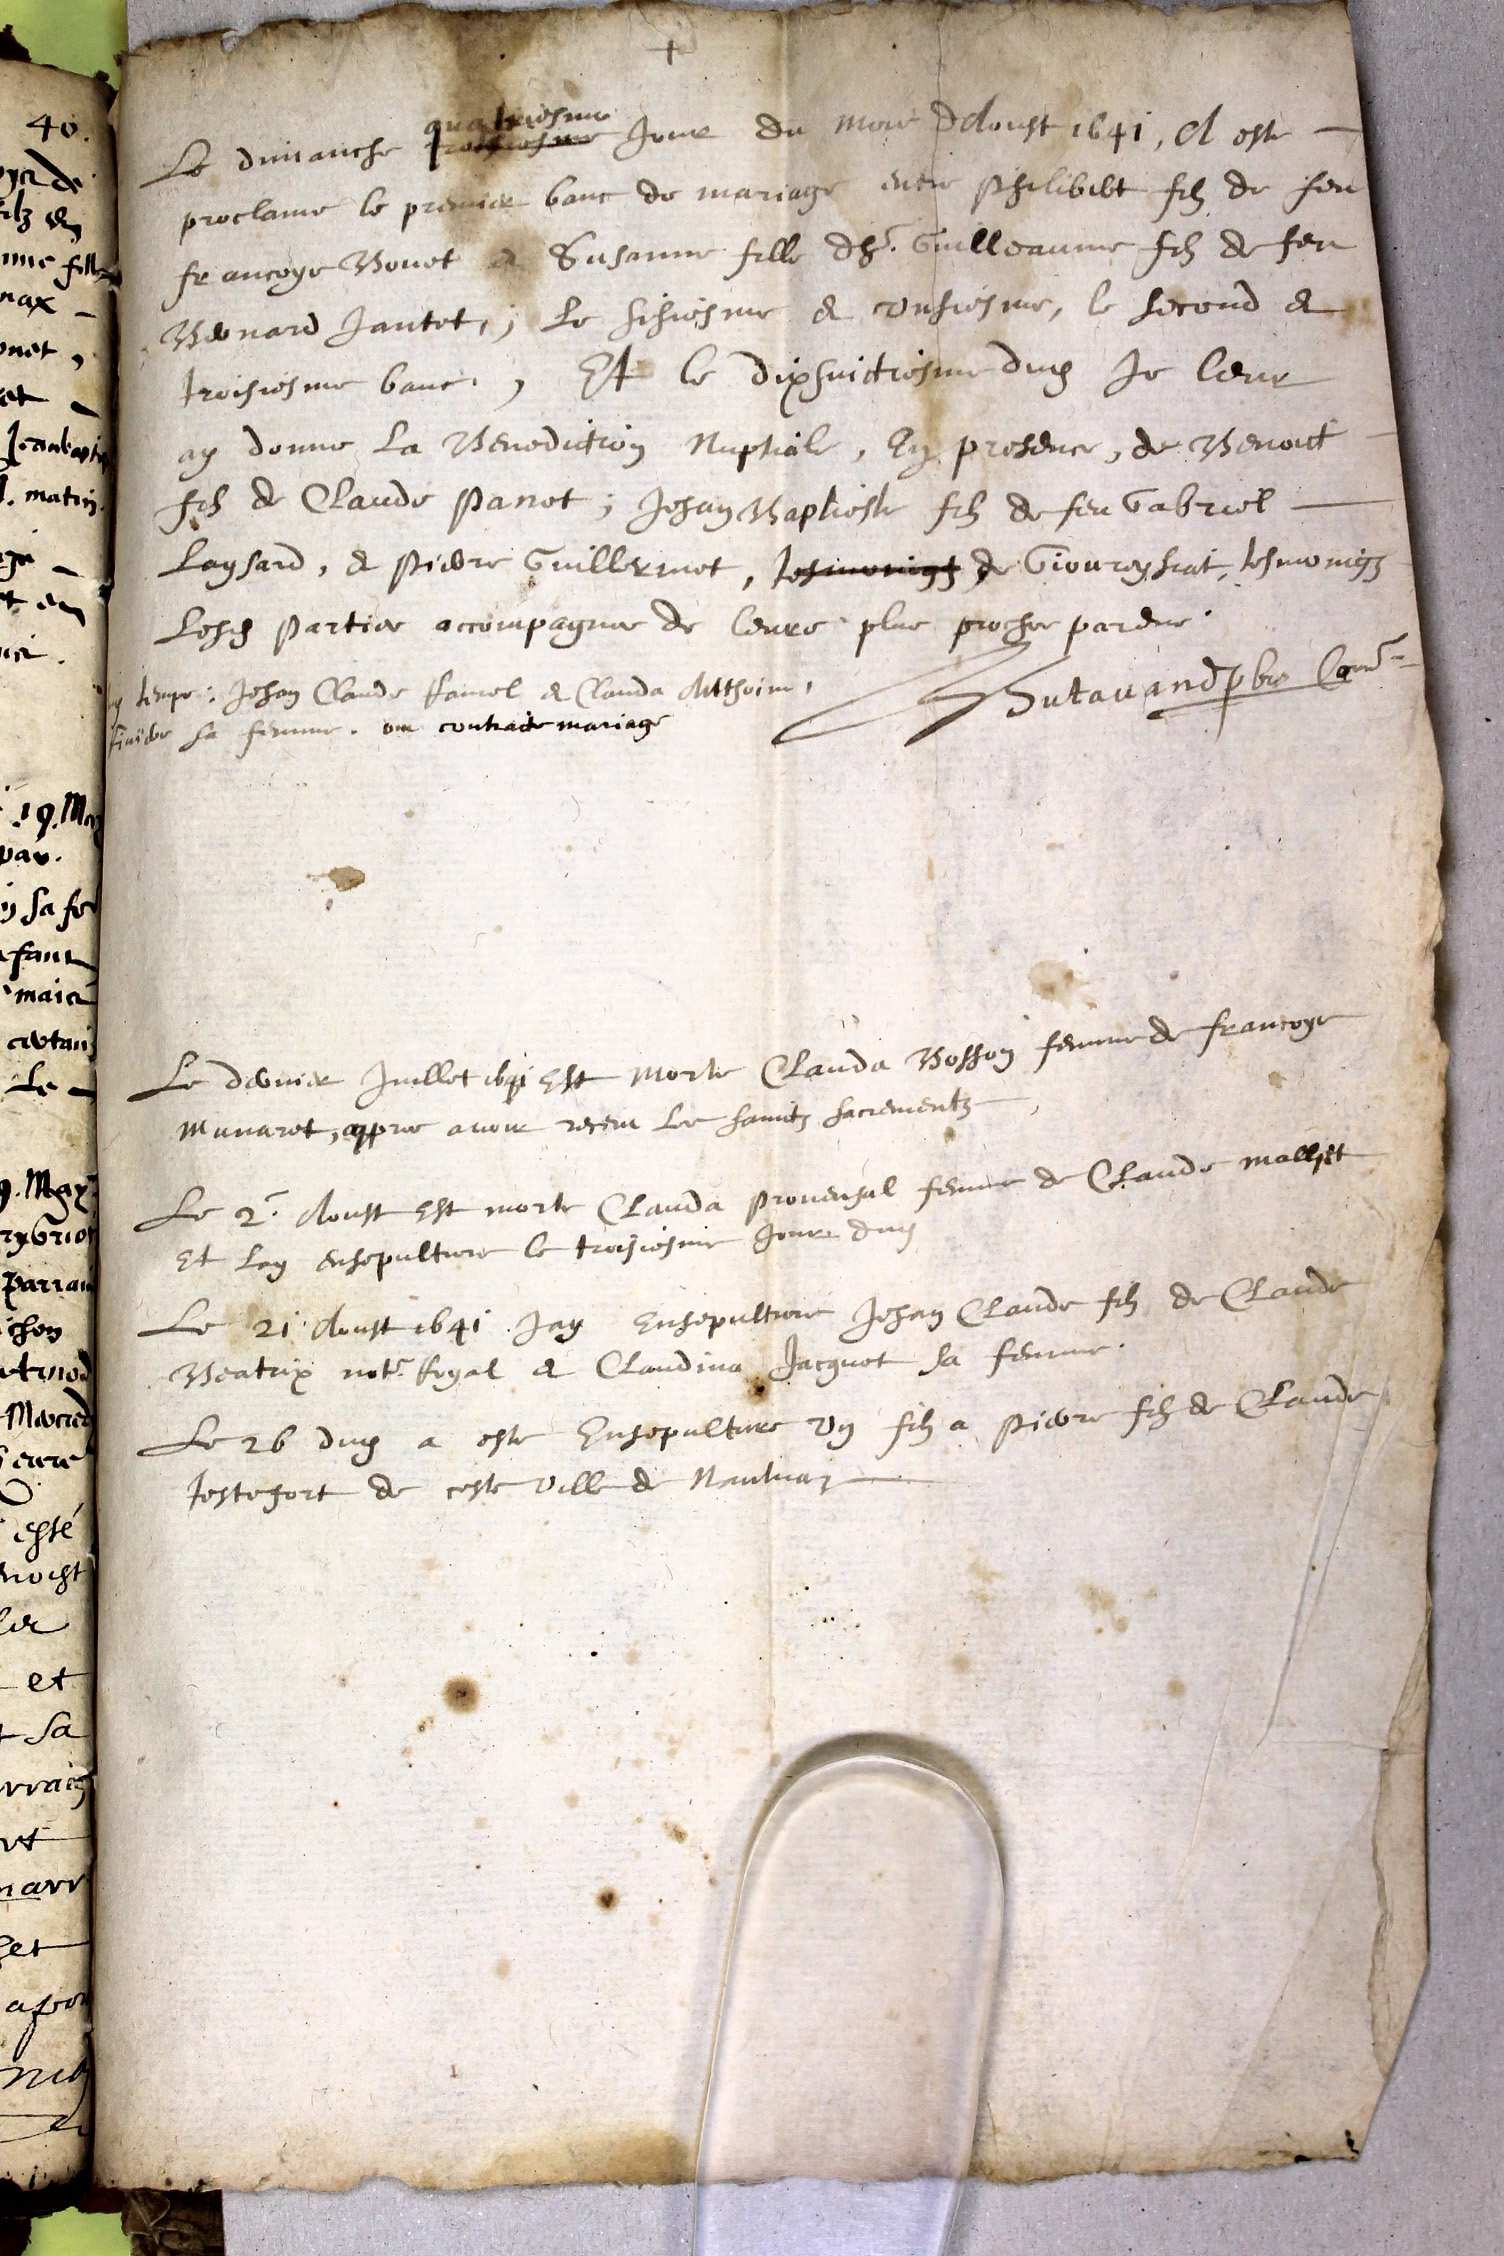 40.
Le dimanche quatriesme troisiesme Jour du mois d'Aoust 1641, A este
proclame le premier banc de mariage entre Philibert filz de feu
francoys Bonet & Susanne fille d'h.^e Guilleaume filz de feu
Bernard Jantet, ; Le sisiesme & onsiesme, le second &
troisiesme banc, Et le dixhuictiesme dud je leur
ay donne La Benediction Nuptiale, En presence, de Benoict
filz de Claude Panet ; Jehan Baptieste filz de feu Gabriel
Laysard, & Pierre Guillermet, tesmoningz de Gioureyssiat, tesmoningz
Lesd Parties accompagnes de leurs plus proches parens.
temps, Jehan Claude Ramel & Clauda
sa femme. on contracte mariage
Butauand pbre Com^re
Le dernier Juillet 1641 Est Morte Clauda Bosson femme de francoys
Munaret, appres auoir receu Les sainctz sacrementz
Le 2.^e Aoust Est morte Clauda Prouensal femme de Claude malliet
Et lay ensepulture le troisiesme Jour dud
Le 21 Aoust 1641 Jay Ensepulture Jehan Claude filz de Claude
Beatrix not.^re Royal & Claudina Jacquet sa femme.
Le 26 dud a este Ensepulture Un filz a Pierre filz de Claude
Testefort de ceste Ville de Nantua